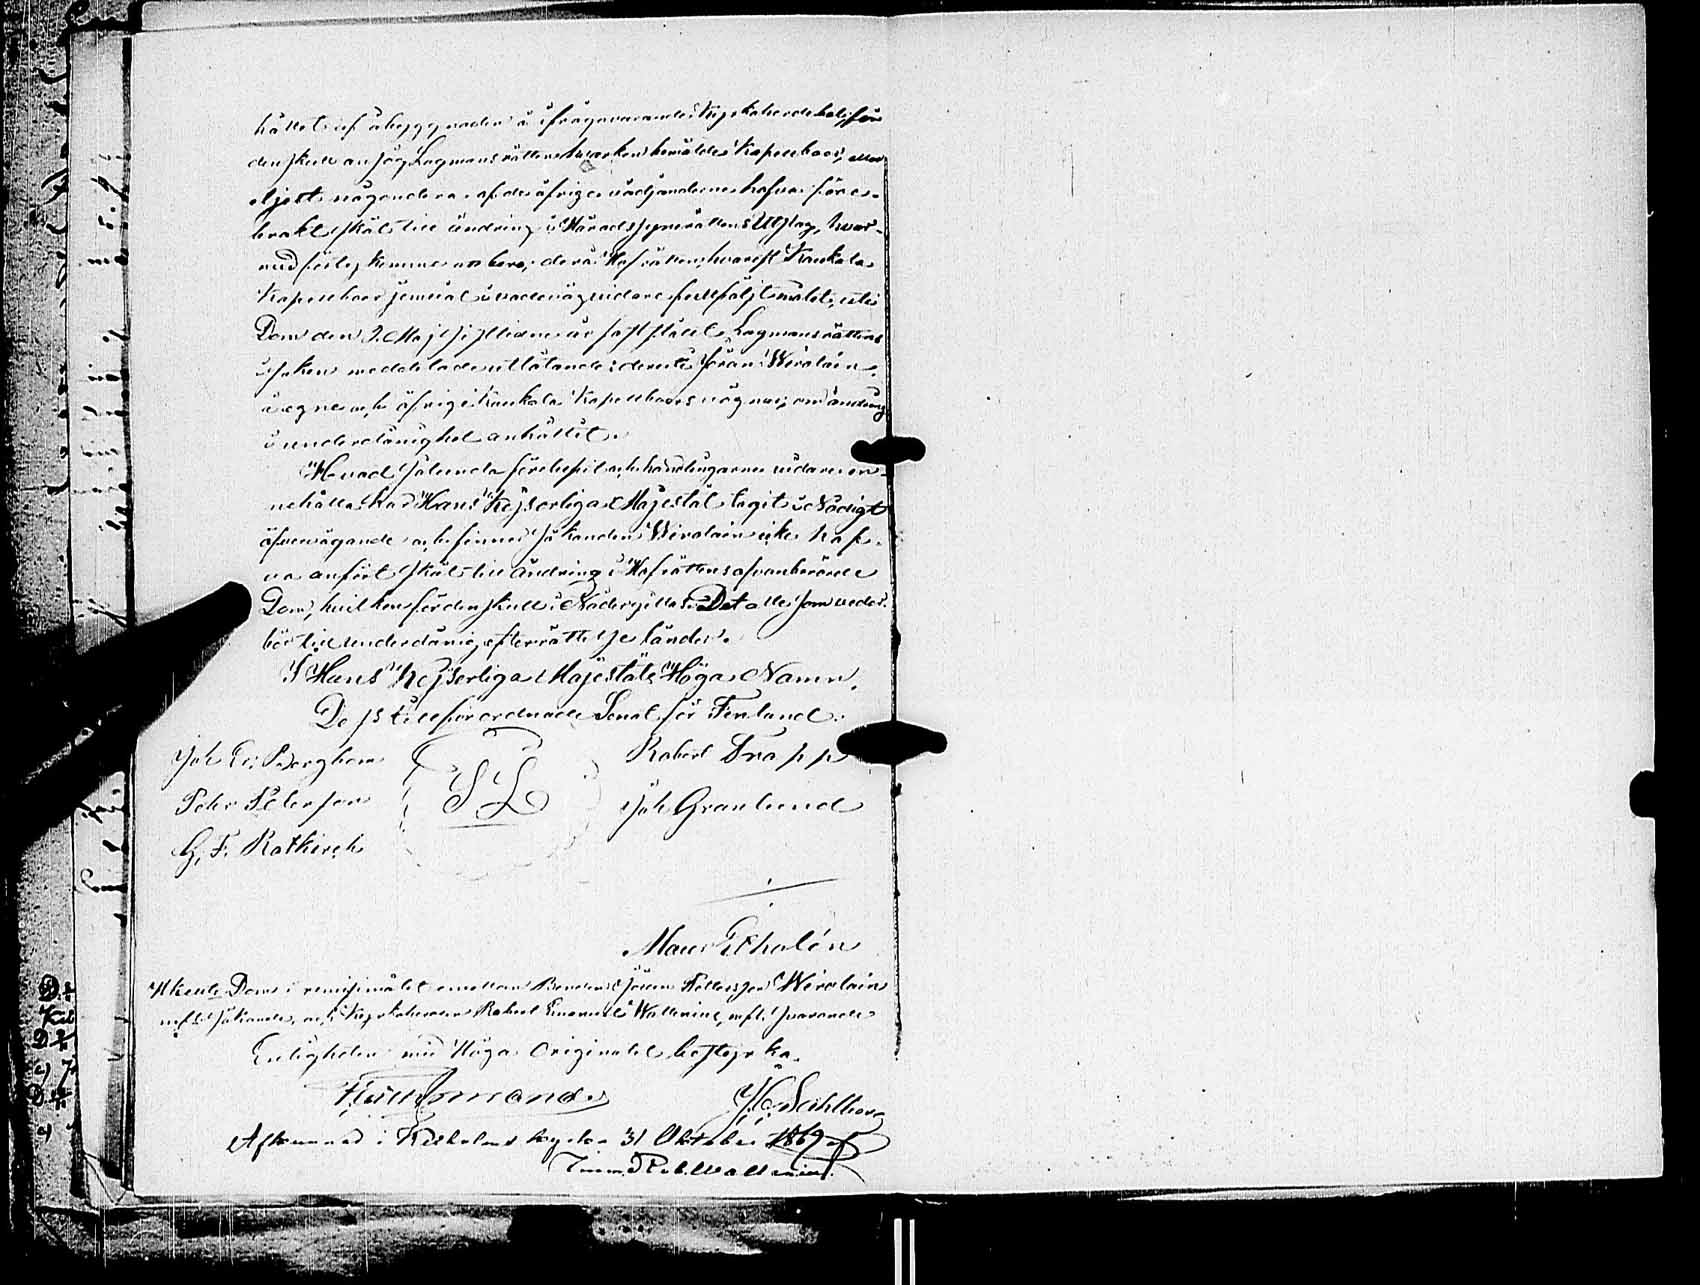 hållet af åbyggnader å ifrågavarande Kyrkoherdebol, för
den skull ansåg Lagmansrätten hvarken bemälde Kapellboer, eller
eljest någondera af de öfrige vädjanderne hafva före-
brakt skäl till ändring i Häradssynerättens Utslag, hvar-
med fördy komme att bero; derå Hofrätten, hvarest Kaukola
Kapellboer jemväl i vadeväg vidare fullföljt målet, uti
Dom den 2 Maj sistlidne år fastställt Lagmansrättens
i saken meddelade utlåtande; deruti Jöran Wirolain
å egne och öfrige Kaukola Kapellboers vägnar, om ändring
i underdånighet anhållit.
Hvad sålunda förelupit och handlingarne vidare in-
nehålla har Hans Kejserliga Majestät tagit i Nådigt
öfvervägande och finner sökanden Wirolain icke haf-
va anfört skäl till ändring i Hofrättens ofvanberörde
Dom, hvilken fördenskull i Nåder gillas. Det alle som veder-
bör till underdånig efterrättelse länder.
I Hans Kejserliga Majestäts Höga Namn,
Dess tillförordnade Senat för Finland:
Joh. Ed. Bergbom
Robert Trapp
Pehr Peterson
S L
Joh Granlund
G. F. Rotkirch
Maur Etholén
Utskrift Dom i revisionsmålet emellan Bonden Jöran Wirolain
m.fl. sökande, och Kyrkoherden Robert Emanuel Wallenius, m.fl. svarande
Enligheten med Höga Originalet bestyrka.
Afkunnad i Kexholms den 31 Oktober 1869 af
Rob. Wallenius.